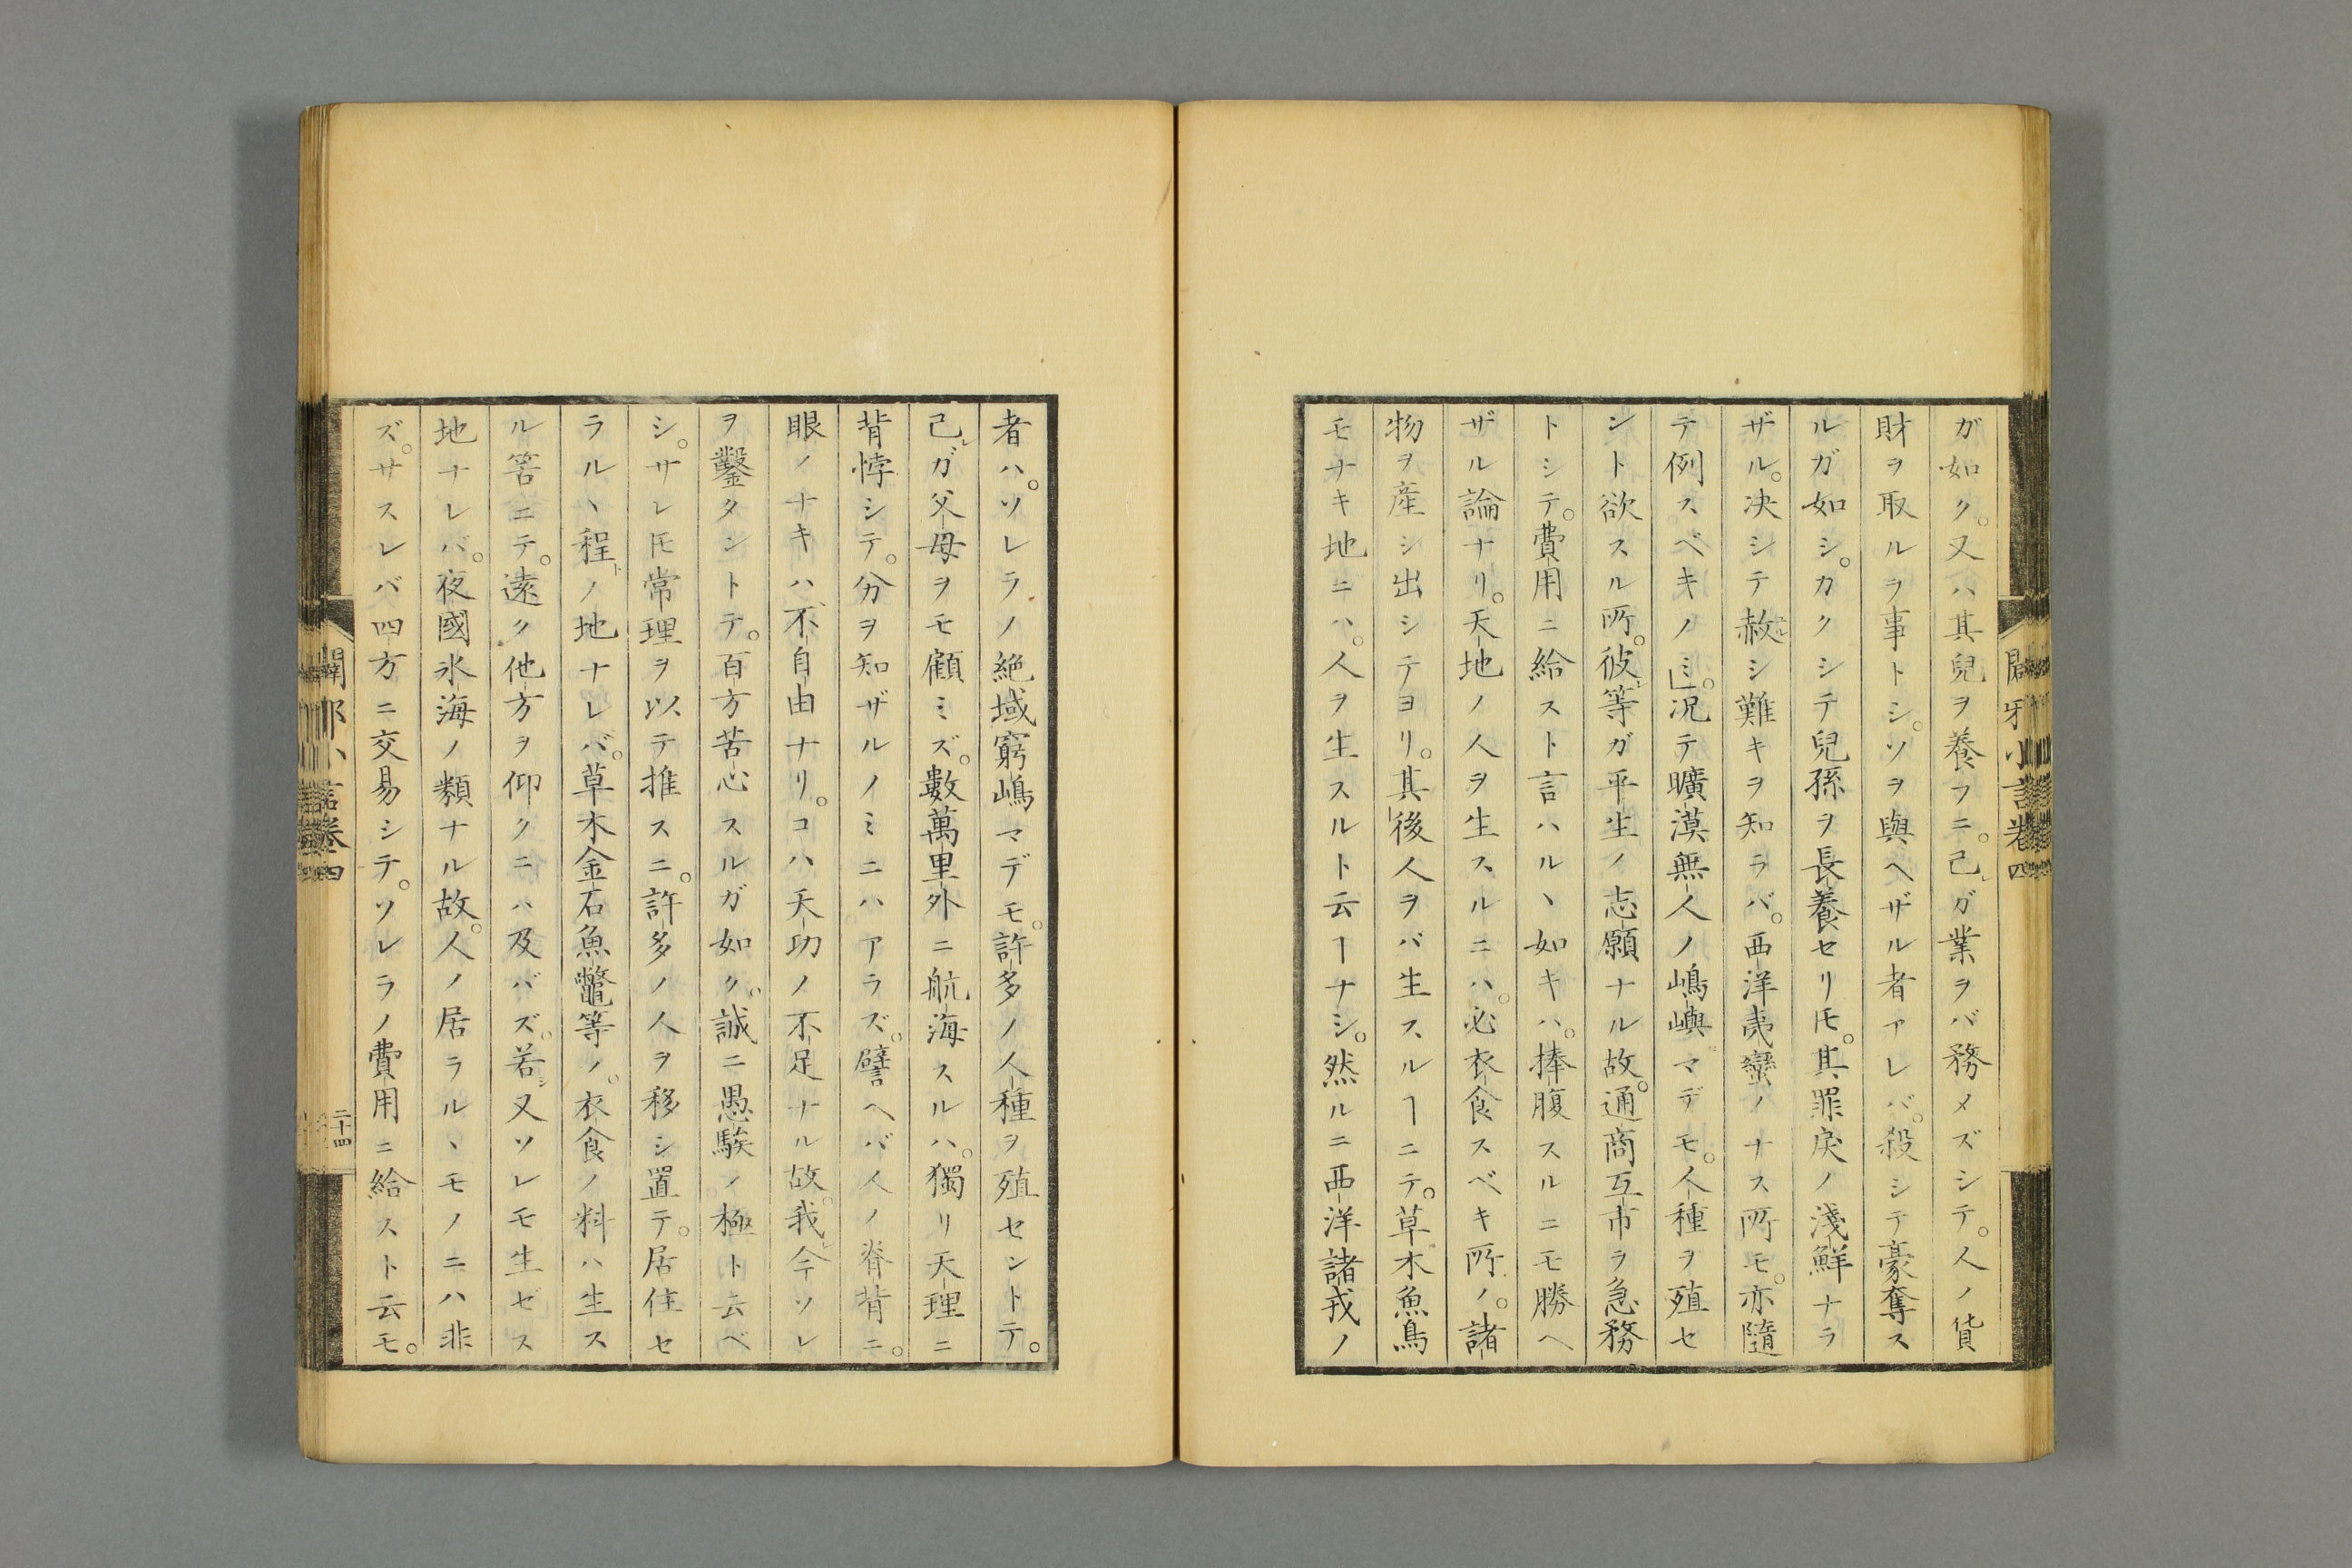 ガ如ク。又ハ其兒ヲ養フニ。己ガ業ヲバ務メズシテ。人ノ貨
財ヲ取ルヲ事トシ。ソヲ與ヘザル者アレバ。殺シテ豪奪ス
ルガ如シ。カクシテ兒孫ヲ長養セリ𪜈。其罪戻ノ淺鮮ナラ
ザル。决シテ赦シ難キヲ知ラバ。西洋夷蠻ノナス所モ。亦隨
テ例スベキノミ」。况テ曠漠無人ノ嶋嶼マデモ。人種ヲ殖セ
ント欲スル所。彼等ガ平生ノ志願ナル故。通商互市ヲ急務
トシテ。費用ニ給スト言ハルヽ如キハ。捧腹スルニモ勝ヘ
ザル論ナリ。天地ノ人ヲ生スルニハ。必衣食スベキ所ノ。諸
物ヲ産シ出シテヨリ。其後人ヲバ生スルヿニテ。草木魚鳥
モナキ地ニハ。人ヲ生スルト云ヿナシ。然ルニ西洋諸戎ノ
闢邪小言卷四
者ハ。ソレラノ絶域窮嶋マデモ。許多ノ人種ヲ殖セントテ。
己ガ父母ヲモ顧ミズ。數萬里外ニ航海スルハ。獨リ天理ニ
背悖シテ。分ヲ知ザルノミニハアラズ。譬ヘバ人ノ脊背ニ。
眼ノナキハ不自由ナリ。コハ天功ノ不足ナル故。我今ソレ
ヲ鑿タントテ。百方苦心スルガ如ク。誠ニ愚騃ノ極ト云ベ
シ。サレ𪜈常理ヲ以テ推スニ。許多ノ人ヲ移シ置テ。居住セ
ラルヽ程ノ地ナレバ。草木金石魚鼈等ノ。衣食ノ料ハ生ス
ル筈ニテ。遠ク他方ヲ仰クニハ及バズ。若又ソレモ生ゼス
地ナレバ。夜國氷海ノ類ナル故。人ノ居ラルヽモノニハ非
ズ。サスレバ四方ニ交易シテ。ソレラノ費用ニ給スト云モ。
闢邪小言卷四
二十四